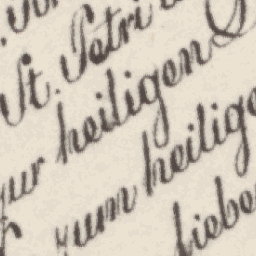 St. Petri
zur heiligen
zum heilige
liebe